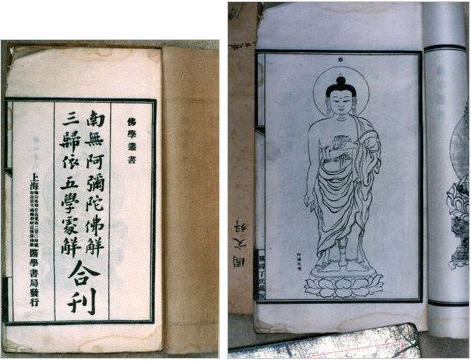 佛學叢書
南無阿彌陀佛解
三歸依五學處解
合刊
上海
醫學書局發行
國文科